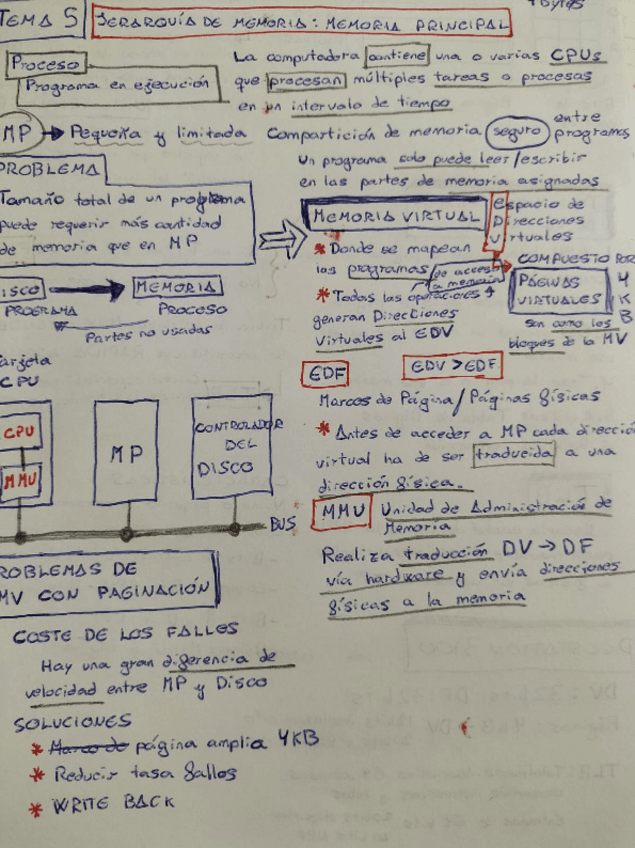 TEMA 5 JERARQUÍA DE MEMORIA: MEMORIA PRINCIPAL
Bytes
Proceso
Programa en ejecución
La computadora contiene una o varias CPUs
que procesan múltiples tareas o procesas
en un intervalo de tiempo
MP → Pequeña y limitada
Compartición de memoria seguro entre
programas
Un programa solo puede leer/escribir
en las partes de memoria asignadas
PROBLEMA
Tamaño total de un problema
puede requerir más cantidad
de memoria que en MP
DISCO → MEMORIA
PROGRAMA PROCESO
Partes no usadas
MEMORIA VIRTUAL
Espacio de
Direcciones
Virtuales
* Donde se mapean
los programas
* Todas las operaciones
de acceso
a memoria
generan Direcciones
Virtuales al EDV
COMPUESTO POR
PÁGINAS
VIRTUALES
4
K
B
son como los
bloques de la MV
EDF
EDV > EDF
Marcos de Página/Páginas físicas
* Antes de acceder a MP cada dirección
virtual ha de ser traducida a una
dirección física.
MMU Unidad de Administración de
Memoria
Realiza traducción DV → DF
vía hardware y envía direcciones
físicas a la memoria
Tarjeta
CPU
CPU
MMU
MP
CONTROLADOR
DEL
DISCO
BUS
PROBLEMAS DE
MV CON PAGINACIÓN
COSTE DE LOS FALLES
Hay una gran diferencia de
velocidad entre MP y Disco
SOLUCIONES
* Marco de página amplia 4KB
* Reducir tasa fallos
* WRITE BACK